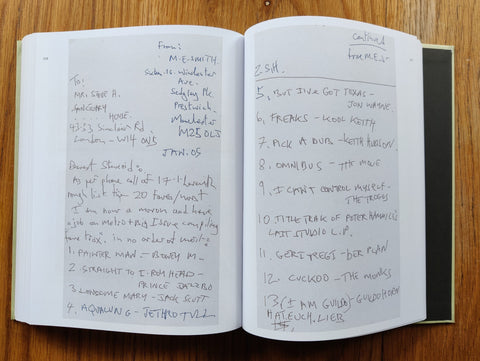 From:
M.E. SMITH.
Suburb. 10. Windsor
Ave.
Sedgley Pk.
Prestwich.
Manchester
M25 0LJ
To:
MR. STEVE A.
HOME.
43-53 Sinclair Rd.
London - W14
JAN. 05
Dearest Steveoid:-
As per phone call of 17.1 herewith
rough list top 20 faves/most
I am now a moron and have
a job on metro + Big Issue compiling
in no order of merit:-
1. PAINTER MAN - BONEY M -
2. STRAIGHT TO I-ROY HEAD -
PRINCE JAZZBO
3. LONESOME MARY - JACK SCOTT
4. AQUALUNG - JETHRO TULL
continued
from M.E.S.
2. SH.
5. BUT I'VE GOT TEXAS -
JOHN WAYNE.
6. FREAKS - KOOL KEITH
7. PICK A DUB - KEITH HUDSON.
8. OMNIBUS - THE MOVE
9. I CAN'T CONTROL MYSELF -
THE TROGGS
10. TITLE TRACK OF PETER HAMMILL'S
LAST STUDIO L.P.
11. GERI REGGI - DER PLAN
12. CUCKOO - THE MONKS
13. (I AM GUILDO) - GUILDO HORN
HAT EUCH LIEB